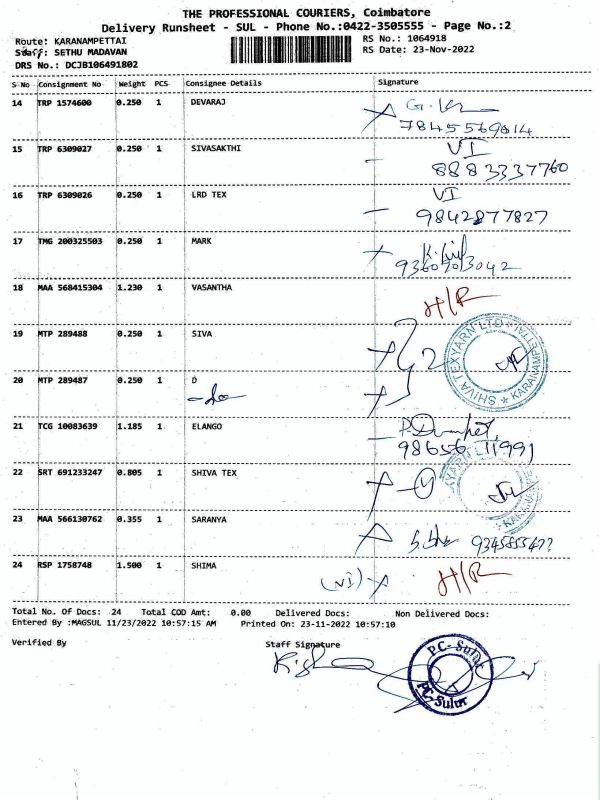 THE PROFESSIONAL COURIERS, Coimbatore
Delivery Runsheet - SUL - Phone No.:0422-3505555 - Page No.:2
Route: KARANAMPETTAI RS No.: 1064918
Staff: SETHU MADAVAN RS Date: 23-Nov-2022
DRS No.: DCJB106491802
S No Consignment No Weight PCS Consignee Details Signature
14 TRP 1574600 0.250 1 DEVARAJ
7845569014
15 TRP 6309027 0.250 1 SIVASAKTHI VI
8883337760
16 TRP 6309026 0.250 1 LRD TEX VI
9842877827
17 TMG 200325503 0.250 1 MARK
18 MAA 568415304 1.230 1 VASANTHA H/R
19 MTP 289488 0.250 1 SIVA
SHIVA TEXYARN LTD KARANAMPETTAI
20 MTP 289487 0.250 1 D
21 TCG 10083639 1.185 1 ELANGO
98656 11991
22 SRT 691233247 0.805 1 SHIVA TEX
23 MAA 566130762 0.355 1 SARANYA
24 RSP 1758748 1.500 1 SHIMA (VI) H/R
Total No. Of Docs: 24 Total COD Amt: 0.00 Delivered Docs: Non Delivered Docs:
Entered By :MAGSUL 11/23/2022 10:57:15 AM Printed On: 23-11-2022 10:57:10
Verified By Staff Signature
P.C- Sulur
PC-Sulur